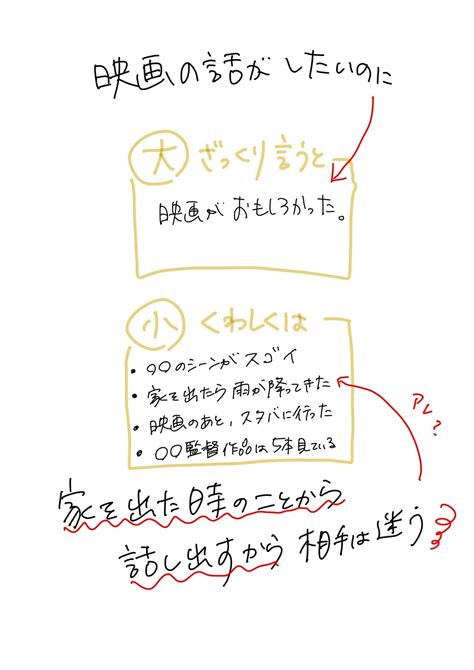 映画の話がしたいのに
大 ざっくり言うと
映画がおもしろかった。
小 くわしくは
・〇〇のシーンがスゴイ
・家を出たら雨が降ってきた
・映画のあと、スタバに行った
・〇〇監督作品は5本見ている
アレ?
家を出た時のことから
話し出すから相手は迷う